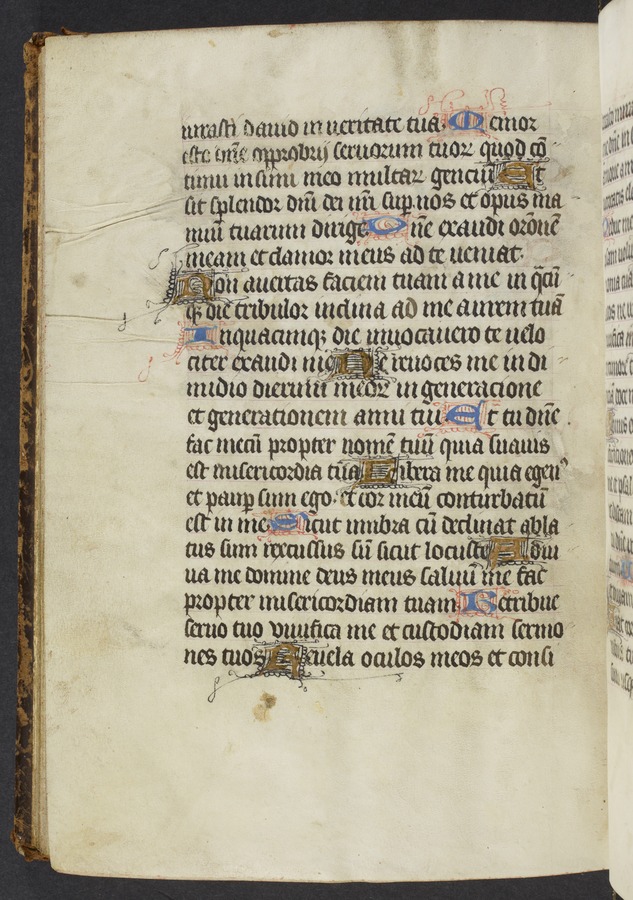 iurasti dauid in ueritate tua. Memor
esto dñe opprobrij seruorum tuoꝝ quod cō
tinui in sinu meo multaꝝ genciū Et
sit splendor dñi dei nr̄i sup nos et opus ma
nuū tuarum dirige Dñe exaudi orōnē
meam et clamor meus ad te ueniat.
Non auertas faciem tuam a me in q̄cū
qꝫ die tribulor inclina ad me aurem tuā
In quacumqꝫ die inuocauero te uelo
citer exaudi me Ne reuoces me in di
midio dierum meoꝝ in generacione
et generationem anni tui Et tu dñe
fac mecū propter nomē tuū quia suauis
est misericordia tua Libera me quia egenᵒ
et paup sum ego et cor meū conturbatū
est in me Sicut umbra cū declinat abla
tus sum excussus sū sicut locuste Adiu
ua me domine deus meus saluū me fac
propter misericordiam tuam Retribue
seruo tuo viuifica me et custodiam sermo
nes tuos Reuela oculos meos et consi